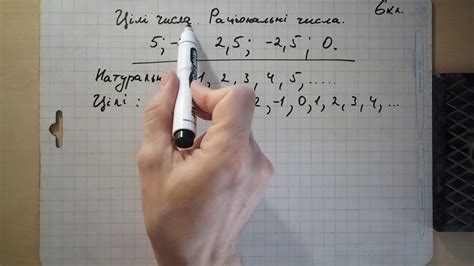 Цілі числа. Раціональні числа. 6 кл.
5; - 2,5; -2,5; 0.
Натураль 1, 2, 3, 4, 5, .....
Цілі: 2, -1, 0, 1, 2, 3, 4, ...